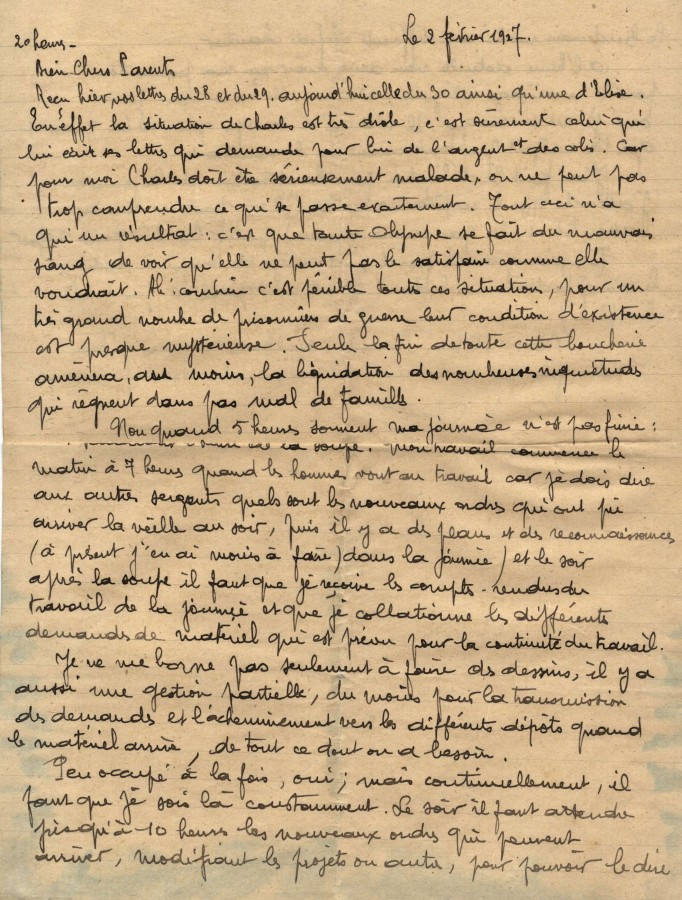 Le 2 février 1927.
20 heures -
Bien Chers Parents
Reçu hier vos lettres du 28 et du 29. aujourd'hui celle du 30 ainsi qu'une d'Elise.
En effet la situation de Charles est très drôle, c'est sûrement celui qui
lui écrit ses lettres qui demande pour lui de l'argent et des colis. Car
pour moi Charles doit être sérieusement malade, on ne peut pas
trop comprendre ce qui se passe exactement. Tout ceci n'a
qu'un résultat : c'est que tante Olympe se fait du mauvais
sang de voir qu'elle ne peut pas le satisfaire comme elle
voudrait. Ah ! combien c'est pénible toutes ces situations, pour un
très grand nombre de prisonniers de guerre leur condition d'existence
est presque mystérieuse. Seule la fin de toute cette boucherie
amènera, au moins, la liquidation des nombreuses inquiétudes
qui règnent dans pas mal de famille.
Non quand 5 heures sonnent ma journée n'est pas finie :
la soupe. Mon travail commence le
matin à 7 heures quand les hommes vont au travail car je dois dire
aux autres sergents quels sont les nouveaux ordres qui ont pu
arriver la veille au soir, puis il y a des plans et des reconnaissances
(à présent j'en ai moins à faire) dans la journée) et le soir
après la soupe il faut que je reçoive les comptes-rendus du
travail de la journée et que je collationne les différents
demandes de matériel qui est prévu pour la continuité du travail.
Je ne me borne pas seulement à faire des dessins, il y a
aussi une gestion partielle, du moins pour la transmission
des demandes et l'acheminement vers les différents dépôts quand
le matériel arrive, de tout ce dont on a besoin.
Peu occupé à la fois, oui ; mais continuellement, il
faut que je sois là constamment. Le soir il faut attendre
jusqu'à 10 heures les nouveaux ordres qui peuvent
arriver, modifiant les projets ou autres, pour pouvoir le dire